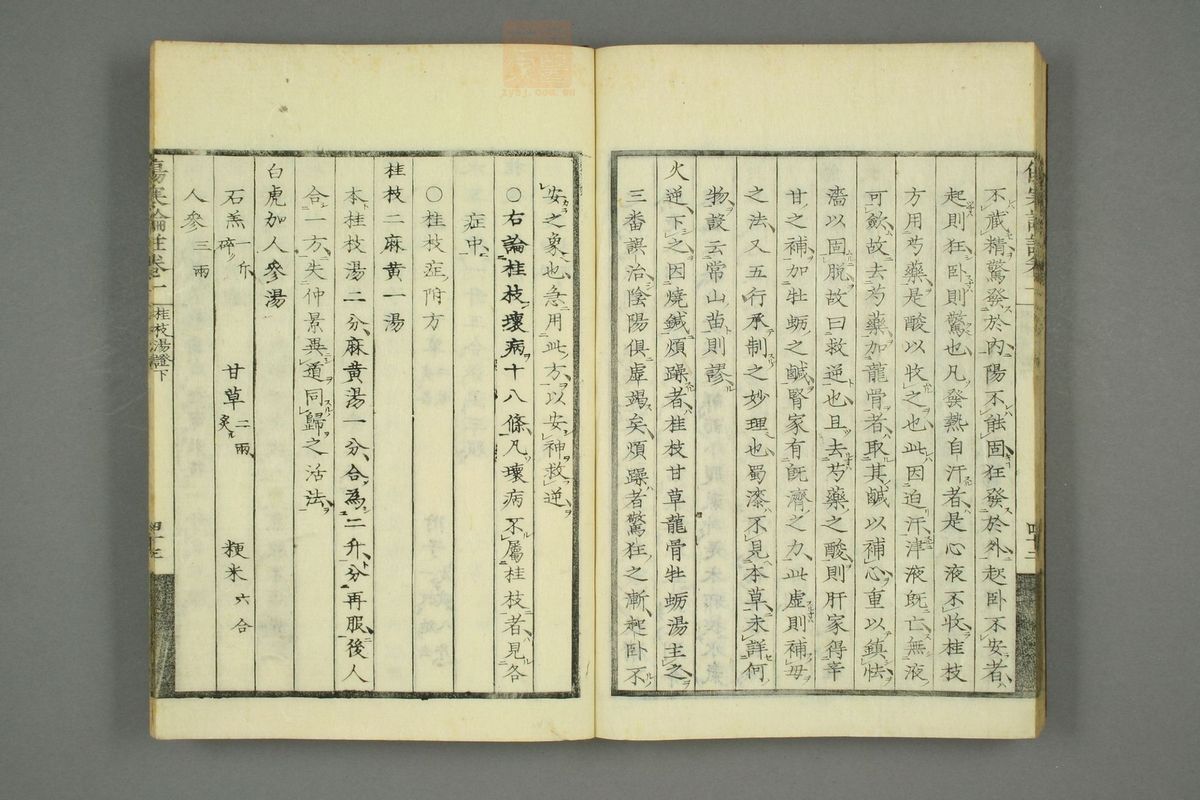 不藏精驚發於內陽不能固狂發於外起卧不安者
起則狂卧則驚也凡發熱自汗者是心液不收桂枝
方用芍藥是酸以收之也此因迫汗津液旣亡無液
可斂故去芍藥加龍骨者取其鹹以補心重以鎮怯
濇以固脫故曰救逆也且去芍藥之酸則肝家得辛
甘之補加牡蛎之鹹腎家有旣濟之力此虛則補母
之法又五行承制之妙理也蜀漆不見本草未詳何
物諸云常山苗則謬
火逆下之因燒鍼煩躁者桂枝甘草龍骨牡蛎湯主之
三番誤治陰陽俱虛竭矣煩躁者驚狂之漸起卧不
安之象也急用此方以安神救逆
○右論桂枝壞病十八條凡壞病不屬桂枝者見各
症中
○桂枝症附方
桂枝二麻黃一湯
本桂枝湯二分麻黃湯一分合為二升分再服後人
合一方失仲景異道同歸之活法
白虎加人參湯
石羔 一斤碎 甘草 二兩炙 粳米 六合
人參 三兩
傷寒論註卷二 桂枝湯證下 四十三